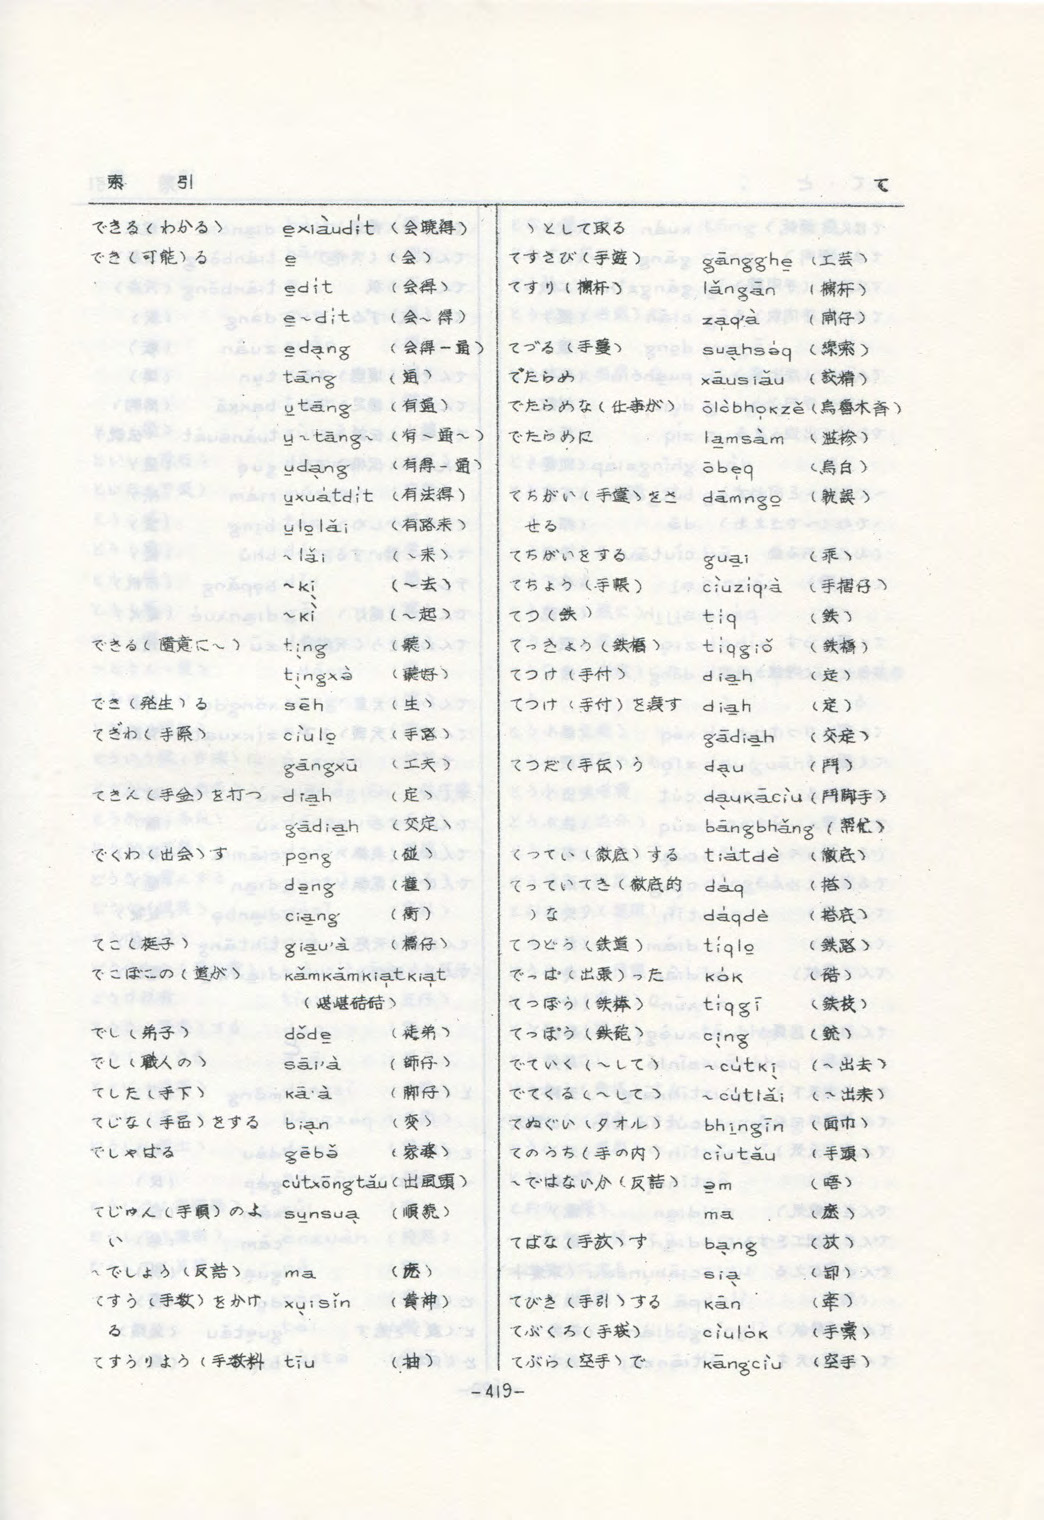 索 引 て
できる(わかる) e̲xiàudi̍t (会暁得)
でき(可能)る e̲ (会)
e̲di̍t (会得)
e̲~di̍t (会~得)
e̲dạng (会得-通)
tāng (通)
u̲tāng (有通)
u̲~tāng~ (有~通~)
u̲dạng (有得-通)
u̲xuátdi̍t (有法得)
u̲lo̲lǎi (有路来)
~lǎi (~来)
~kị̀ (~去)
~kì (~起)
できる(随意に~) tịng (聽)
tịngxə̀ (聽好)
でき(発生)る sēh (生)
てぎわ(手際) cìulo̲ (手路)
gāngxū (工夫)
てきん(手金)を打つ dia̲h (定)
gādia̲h (交定)
でくわ(出会)す po̲ng (碰)
dəng
cia̲ng (衝)
てこ(梃子) gia̲u'à (橋仔)
でこぼこの(道が) kǎmkǎmkia̍tkia̍t
(堪堪硈硈)
でし(弟子) dǒde̲ (徒弟)
でし(職人の) sāi'à (師仔)
てした(手下) kā'à (脚仔)
てじな(手品)をする bịan (変)
でしゃばる gēbə̌ (家婆)
cútxōngtǎu (出風頭)
てじゅん(手順)のよ su̲nsua̲
い
~でしょう(反詰) ma (麽)
てすう(手数)をかけ xụisǐn (費神)
る
てすうりょう(手数料 tīu (抽)
)として取る
てすさび(手遊) gāngghe̲ (工芸)
てすり(欄杆) lǎngān (欄杆)
zạq'à
てづる(手蔓) sua̲hsə́q (線索)
でたらめ xāusiǎu
でたらめな(仕事が) ōlòbho̍kzě (烏魯木斉)
でたらめに la̲msàm (滥糁)
ōbe̍q (烏白)
てちがい(手違)をさ dāmngo̲ (耽誤)
せる
てちがいをする gua̲i (乖)
てちょう(手帳) cìuziq'à (手摺仔)
てつ(鉄) tiq (鉄)
てっきょう(鉄橋) tiqgiǒ (鉄橋)
てつけ(手付) dia̲h (定)
てつけ(手付)を渡す dia̲h (定)
gādia̲h (交定)
てつだ(手伝)う dạu (鬥)
dạukācìu (鬥脚手)
bāngbhǎng (幇忙)
てってい(徹底)する tiátdè (徹底)
てっていてき(徹底的 dáq (搭)
)な dáqdè (搭底)
てつどう(鉄道) tíqlo̲ (鉄路)
でっぱ(出張)った kók
てつぼう(鉄棒) tiqgī (鉄枝)
てっぽう(鉄砲) cịng (銃)
でていく(~して) ~cútkị (~出去)
でてくる(~して) ~cútlǎi (~出来)
てぬぐい(タオル) bhi̲ngīn (面巾)
てのうち(手の内) cìutǎu (手頭)
~ではないか(反詰) ə̲m (唔)
ma (麽)
てばな(手放)す bạng (放)
siạ (卸)
てびき(手引)する kān (牽)
てぶくろ(手袋) cìulo̍k (手橐)
てぶら(空手)で kāngcìu (空手)
-419-